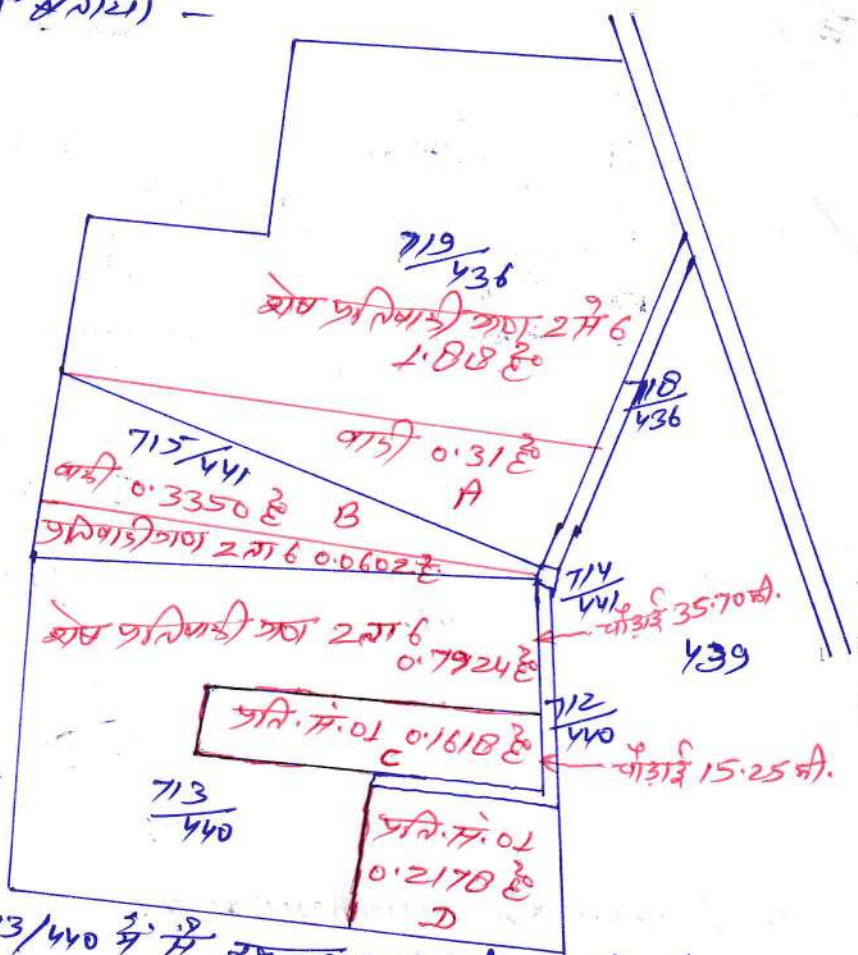 719/436
शेष प्रतिवादी गण 2 से 6
1.818 हे०
718/436
वादी 0.31 हे०
A
715/441
वादी 0.3350 हे०
B
प्रतिवादीगण 2 ता 6 0.0602 हे.
714/441
चौड़ाई 35.70 मी.
शेष प्रतिवादी गण 2 ता 6
0.7924 हे०
439
712/440
प्रति. सं. 01 0.1618 हे०
C
चौड़ाई 15.25 मी.
713/440
प्रति. सं. 01
0.2178 हे०
D
3/440 में से